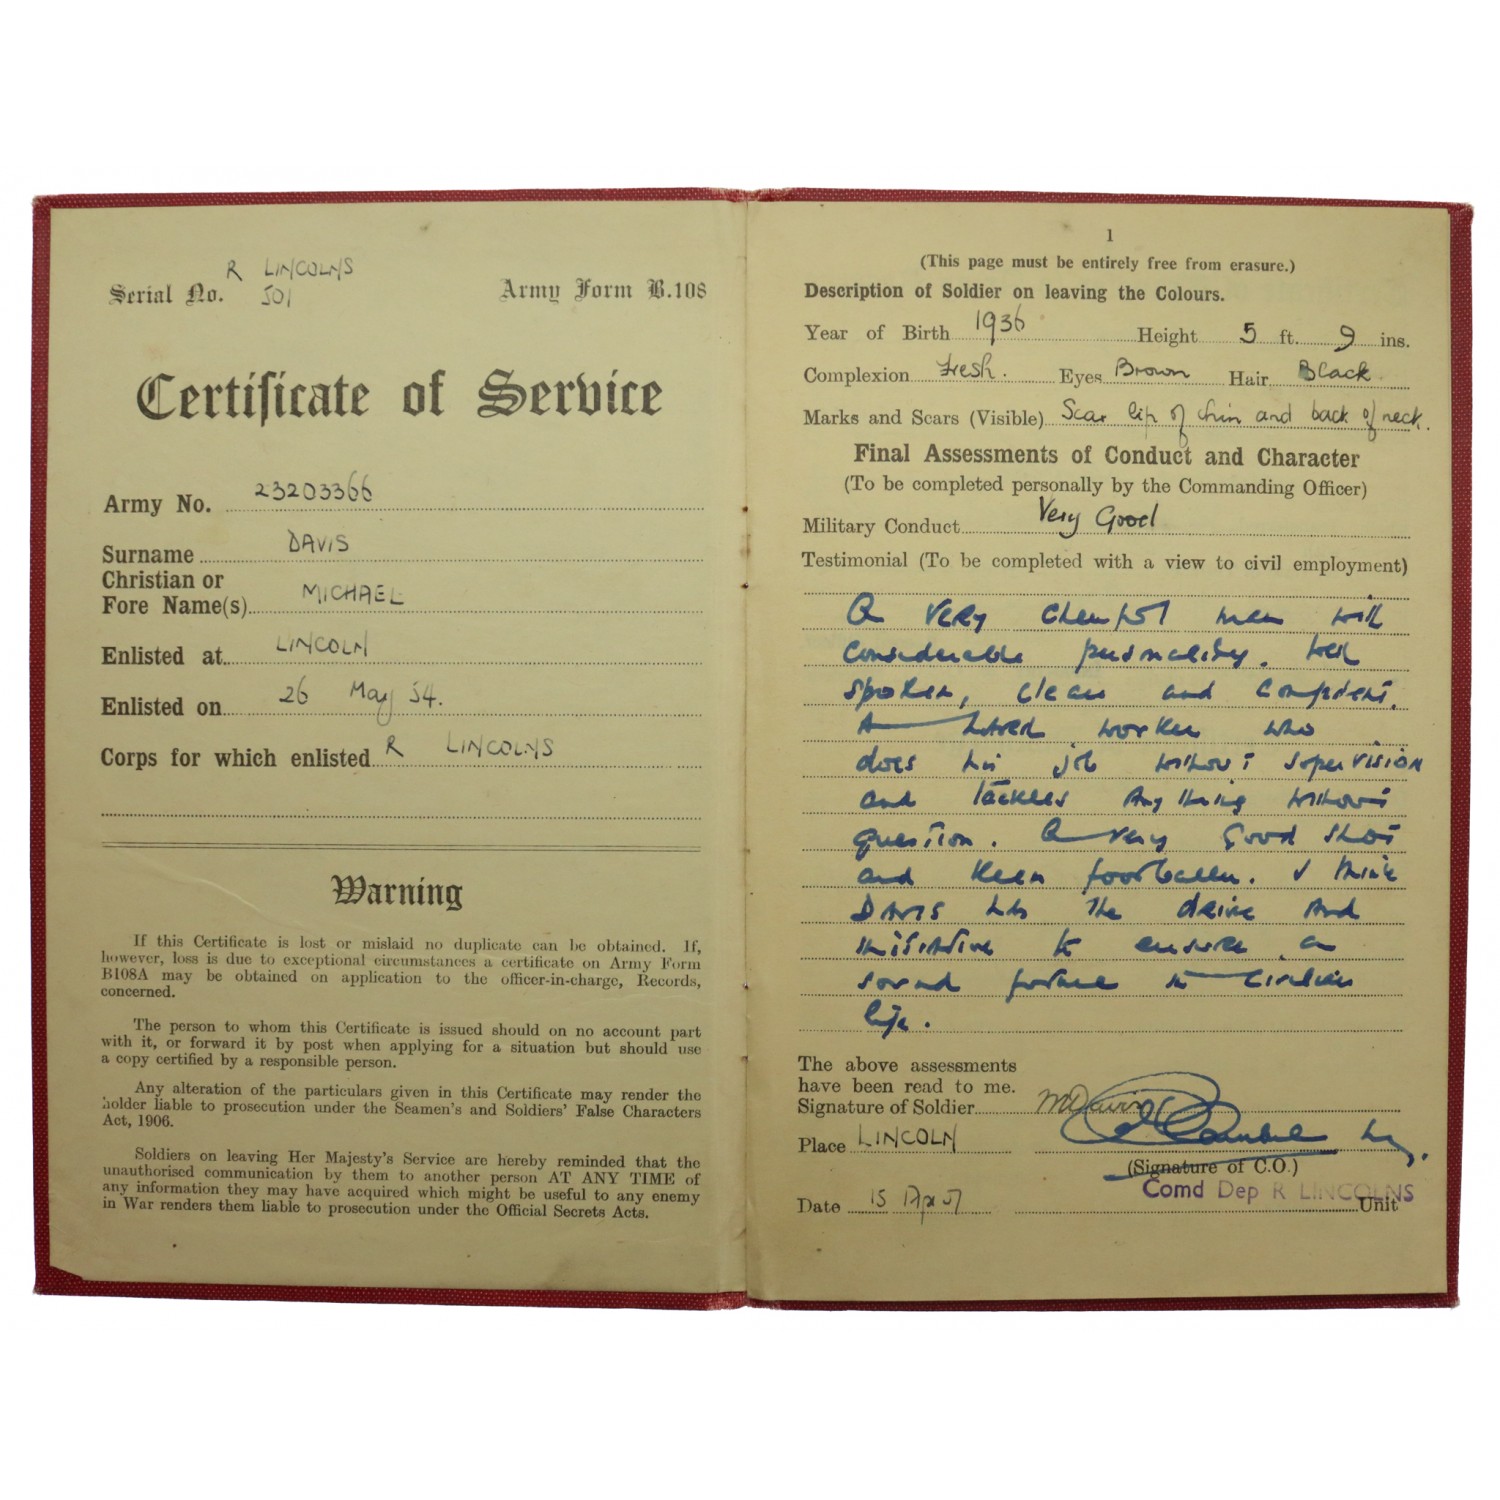 R LINCOLNS
Serial No. 501 Army Form B.108
Certificate of Service
Army No. 23203366
Surname DAVIS
Christian or
Fore Name(s) MICHAEL
Enlisted at LINCOLN
Enlisted on 26 May 54.
Corps for which enlisted R LINCOLNS
Warning
If this Certificate is lost or mislaid no duplicate can be obtained. If,
however, loss is due to exceptional circumstances a certificate on Army Form
B108A may be obtained on application to the officer-in-charge, Records,
concerned.
The person to whom this Certificate is issued should on no account part
with it, or forward it by post when applying for a situation but should use
a copy certified by a responsible person.
Any alteration of the particulars given in this Certificate may render the
holder liable to prosecution under the Seamen's and Soldiers' False Characters
Act, 1906.
Soldiers on leaving Her Majesty's Service are hereby reminded that the
unauthorised communication by them to another person AT ANY TIME of
any information they may have acquired which might be useful to any enemy
in War renders them liable to prosecution under the Official Secrets Acts.
1
(This page must be entirely free from erasure.)
Description of Soldier on leaving the Colours.
Year of Birth 1936 Height 5 ft. 9 ins.
Complexion Fresh. Eyes Brown Hair Black
Marks and Scars (Visible) Scar lip of chin and back of neck.
Final Assessments of Conduct and Character
(To be completed personally by the Commanding Officer)
Military Conduct Very Good
Testimonial (To be completed with a view to civil employment)
A very cheerful man with
considerable personality. Well
spoken, clean and confident.
A hard worker who
does his job without supervision
and tackles anything without
question. A very good shot
and keen footballer. I think
Davis has the drive and
initiative to ensure a
sound future in civilian
life.
The above assessments
have been read to me.
Signature of Soldier MDavis
Place LINCOLN
(Signature of C.O.)
Comd Dep R LINCOLNS
Date 15 Apr 57 Unit